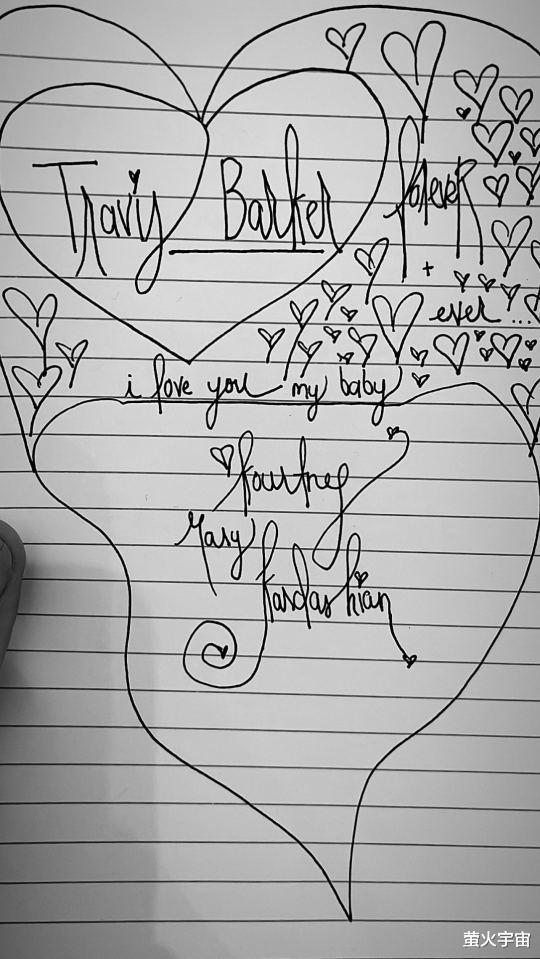 Travis Barker
forever
+
ever...
i love you my baby
Kourtney
Mary
Kardashian
萤火宇宙